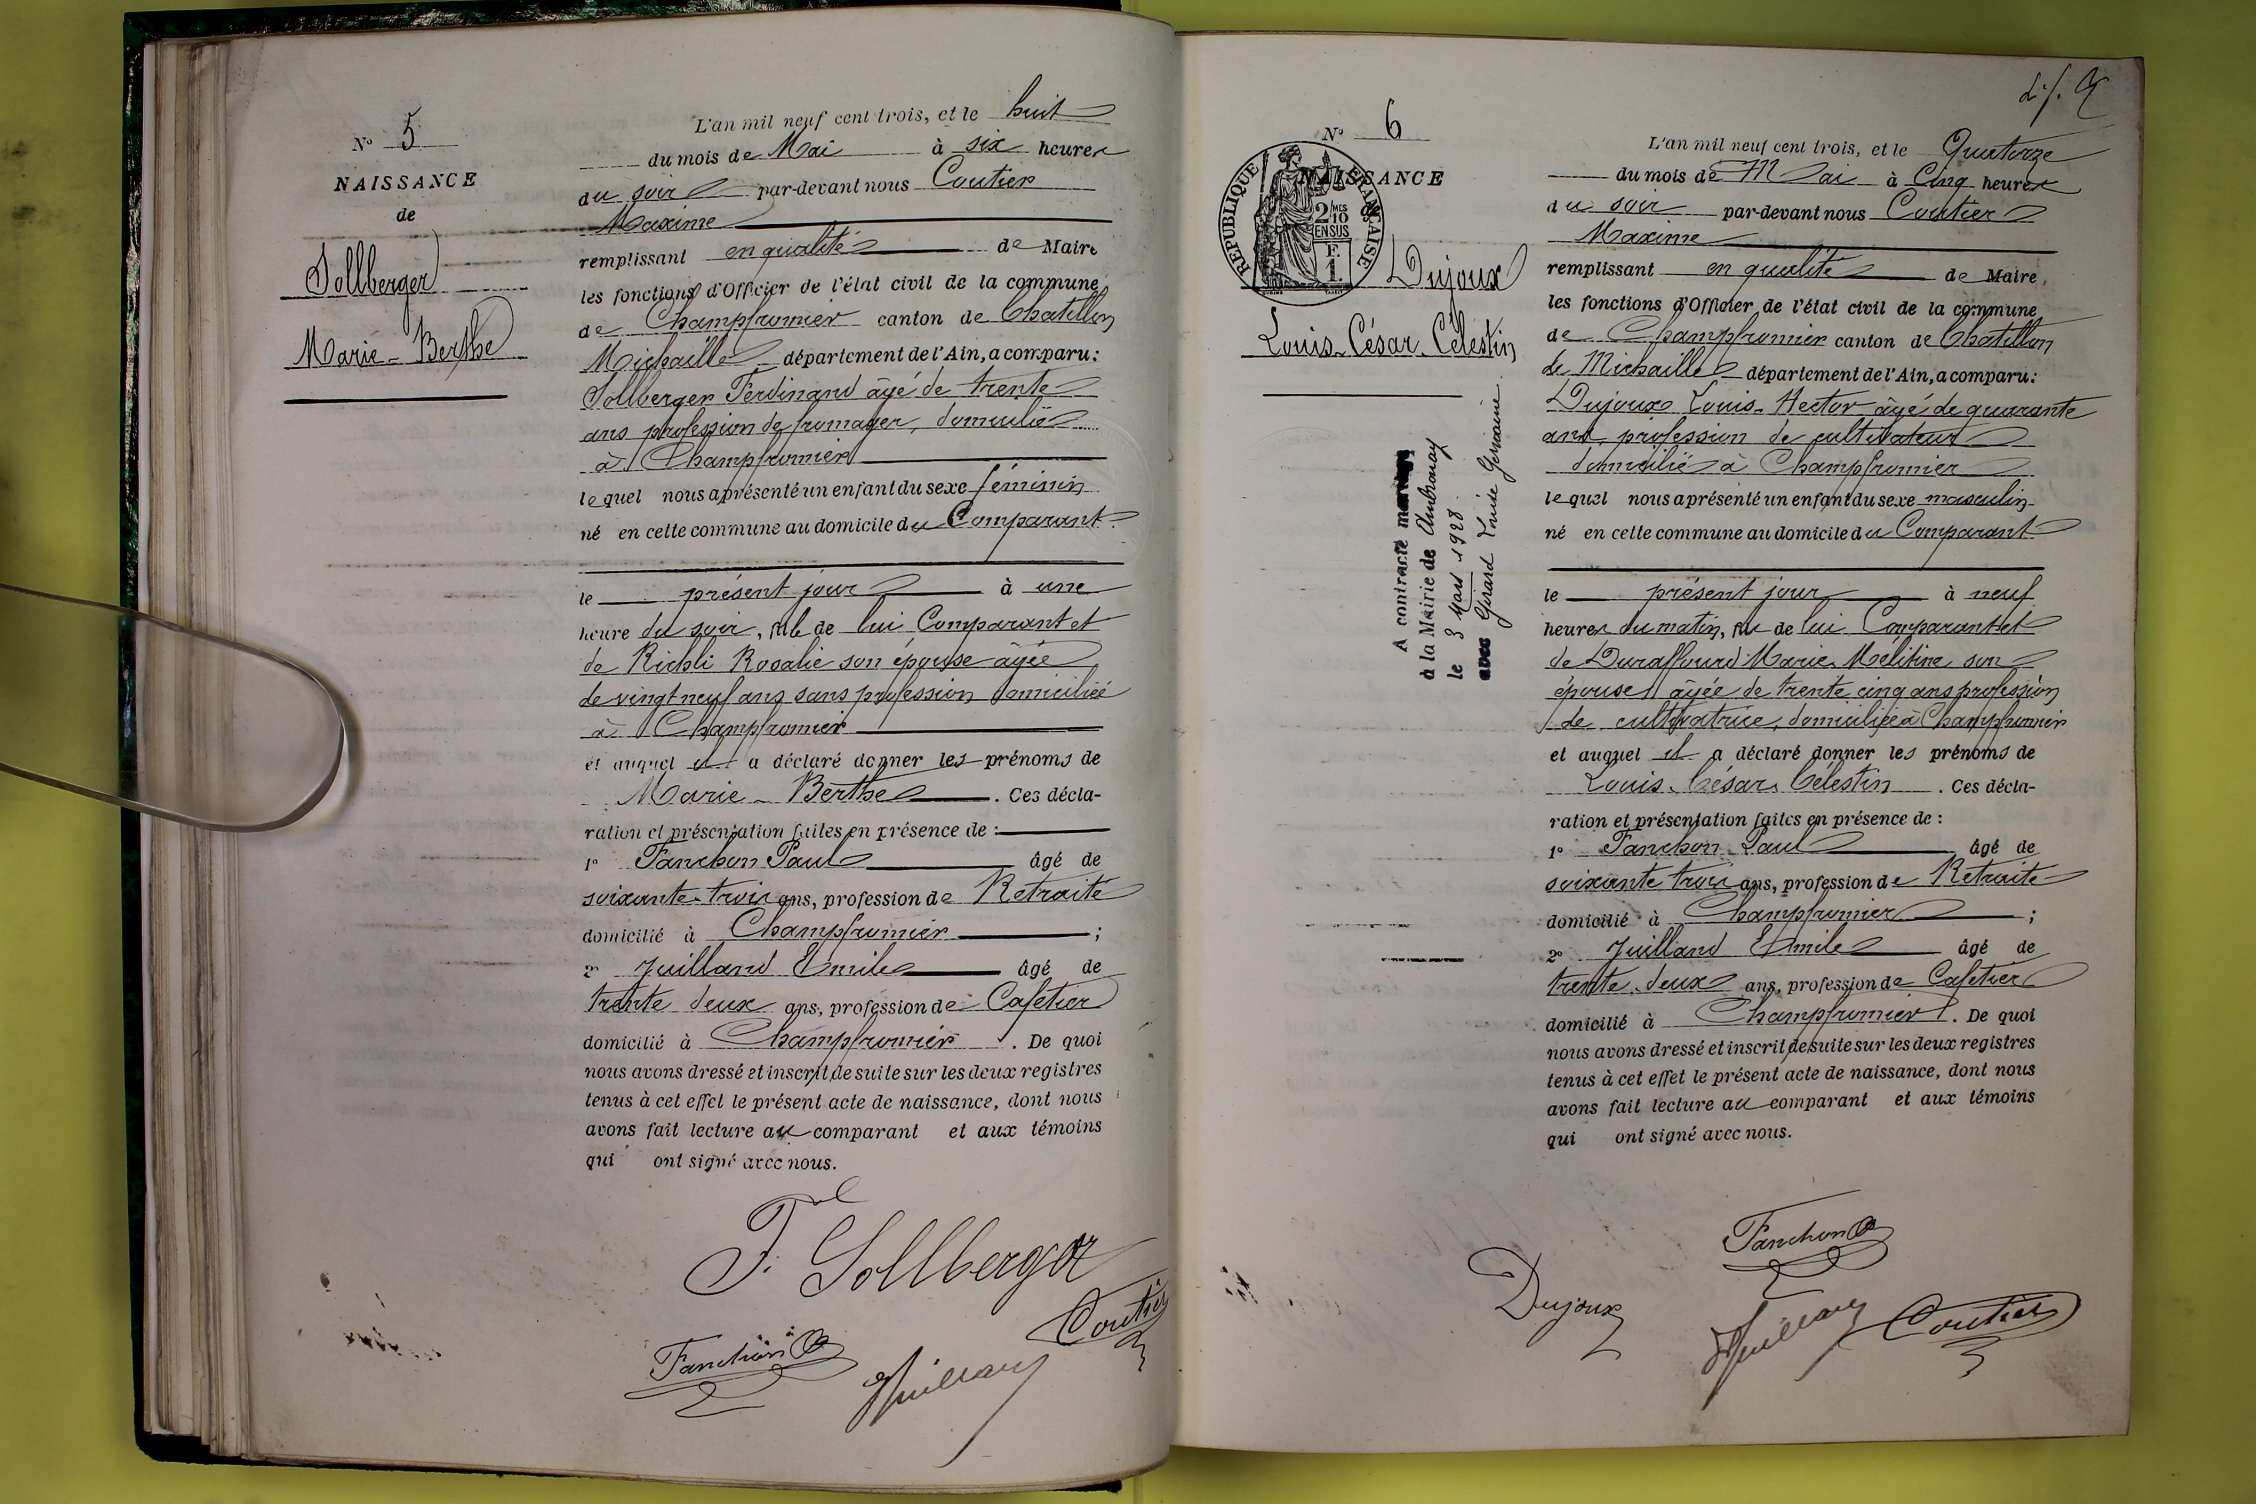 N° 5
NAISSANCE
de
Sollberger
Marie-Berthe
L'an mil neuf cent trois, et le huit
du mois de Mai à six heures
du soir par-devant nous Coutier
Maxime
remplissant en qualité de Maire
les fonctions d'Officier de l'état civil de la commune
de Champfromier canton de Chatillon
Michaille département de l'Ain, a comparu :
Sollberger Ferdinand âgé de trente
ans profession de fromager, domicilié
à Champfromier
lequel nous a présenté un enfant du sexe féminin
né en cette commune au domicile du Comparant
le présent jour à une
heure du soir, fille de lui Comparant et
de Richli Rosalie son épouse âgée
de vingt neuf ans sans profession domiciliée
à Champfromier
et auquel il a déclaré donner les prénoms de
Marie-Berthe. Ces décla-
ration et présentation faites en présence de :
1° Fanchon Paul âgé de
soixante-trois ans, profession de Retraité
domicilié à Champfromier ;
2° Juilland Emile âgé de
trente deux ans, profession de Cafetier
domicilié à Champfromier. De quoi
nous avons dressé et inscrit de suite sur les deux registres
tenus à cet effet le présent acte de naissance, dont nous
avons fait lecture au comparant et aux témoins
qui ont signé avec nous.
F. Sollberger
Coutier
Fanchon
Juilland
N° 6
NAISSANCE
REPUBLIQUE FRANÇAISE
2/10 MES
EN SUS
F.
1.
Dujoux
Louis-César-Célestin
A contracté mariage
à la Mairie de
le 3 Mars 1928
avec Girard Louise Germaine
L'an mil neuf cent trois, et le Quatorze
du mois de Mai à Cinq heures
du soir par-devant nous Coutier
Maxime
remplissant en qualité de Maire,
les fonctions d'Officier de l'état civil de la commune
de Champfromier canton de Chatillon
de Michaille département de l'Ain, a comparu :
Dujoux Louis-Hector âgé de quarante
ans, profession de cultivateur
domicilié à Champfromier
lequel nous a présenté un enfant du sexe masculin
né en cette commune au domicile du Comparant
le présent jour à neuf
heures du matin, fils de lui Comparant et
de Duraffourd Marie-Mélitine son
épouse âgée de trente cinq ans profession
de cultivatrice, domiciliée à Champfromier
et auquel il a déclaré donner les prénoms de
Louis-César-Célestin. Ces décla-
ration et présentation faites en présence de :
1° Fanchon-Paul âgé de
soixante trois ans, profession de Retraité
domicilié à Champfromier ;
2° Juilland Emile âgé de
trente-deux ans, profession de Cafetier
domicilié à Champfromier. De quoi
nous avons dressé et inscrit de suite sur les deux registres
tenus à cet effet le présent acte de naissance, dont nous
avons fait lecture au comparant et aux témoins
qui ont signé avec nous.
Fanchon
Dujoux
Juilland
Coutier